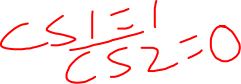 CS1=1
CS2=0